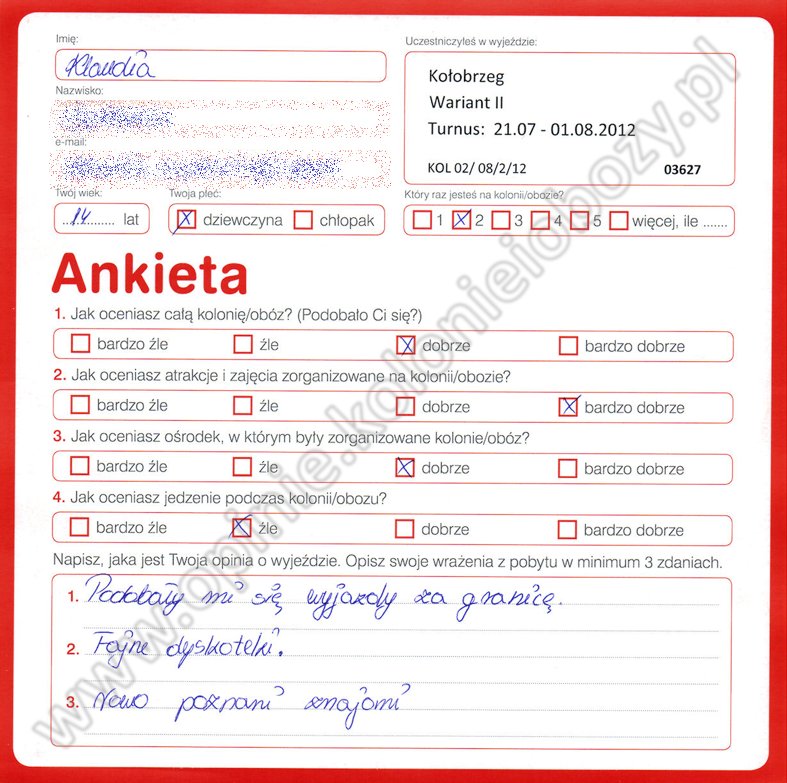 Imię:
Klaudia
Uczestniczyłeś w wyjeździe:
Kołobrzeg
Wariant II
Turnus: 21.07 - 01.08.2012
KOL 02/ 08/2/12 03627
Nazwisko:
e-mail:
Twój wiek:
14 lat
Twoja płeć:
X dziewczyna chłopak
Który raz jesteś na kolonii/obozie?
1 X 2 3 4 5 więcej, ile .......
Ankieta
1. Jak oceniasz całą kolonię/obóz? (Podobało Ci się?)
bardzo źle źle X dobrze bardzo dobrze
2. Jak oceniasz atrakcje i zajęcia zorganizowane na kolonii/obozie?
bardzo źle źle dobrze X bardzo dobrze
3. Jak oceniasz ośrodek, w którym były zorganizowane kolonie/obóz?
bardzo źle źle X dobrze bardzo dobrze
4. Jak oceniasz jedzenie podczas kolonii/obozu?
bardzo źle X źle dobrze bardzo dobrze
Napisz, jaka jest Twoja opinia o wyjeździe. Opisz swoje wrażenia z pobytu w minimum 3 zdaniach.
1. Podobały mi się wyjazdy za granicę.
2. Fajne dyskoteki.
3. Nowo poznani znajomi
www.opinie.kolonieiobozy.pl